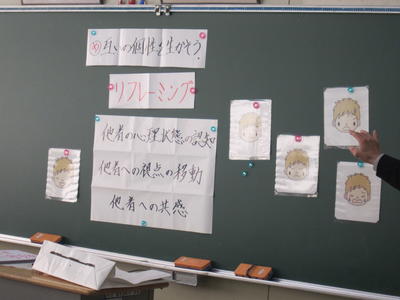 め 互いの個性を生かそう。
リフレーミング
他者の心理状態の認知
他者への視点の移動
他者への共感